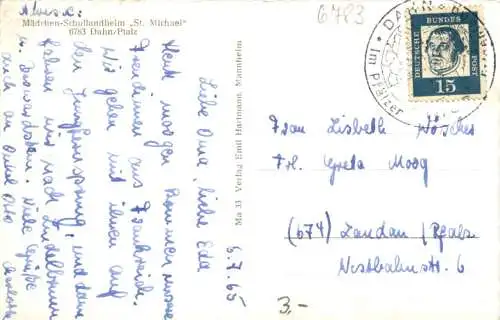 Absender:
Mädchen-Schullandheim „St. Michael"
6783 Dahn/Pfalz
6783
5.7.65
Liebe Oma, liebe Eda
Heute morgen kommen unsere
Freundinnen aus Frankreich.
Wir gehen mit ihnen auf
den Jungfernsprung, und dann
fahren wir nach Lindelbrunn
u. Viele Grüße
auch an Onkel Otto
Ma 33 Verlag Emil Hartmann, Mannheim
DAHN
Im Pfälzer
DEUTSCHE BUNDESPOST
15
Frau Lisbeth
Frl. Greta Moog
(674) Landau/Pfalz
Westbahnstr. 6
3,-